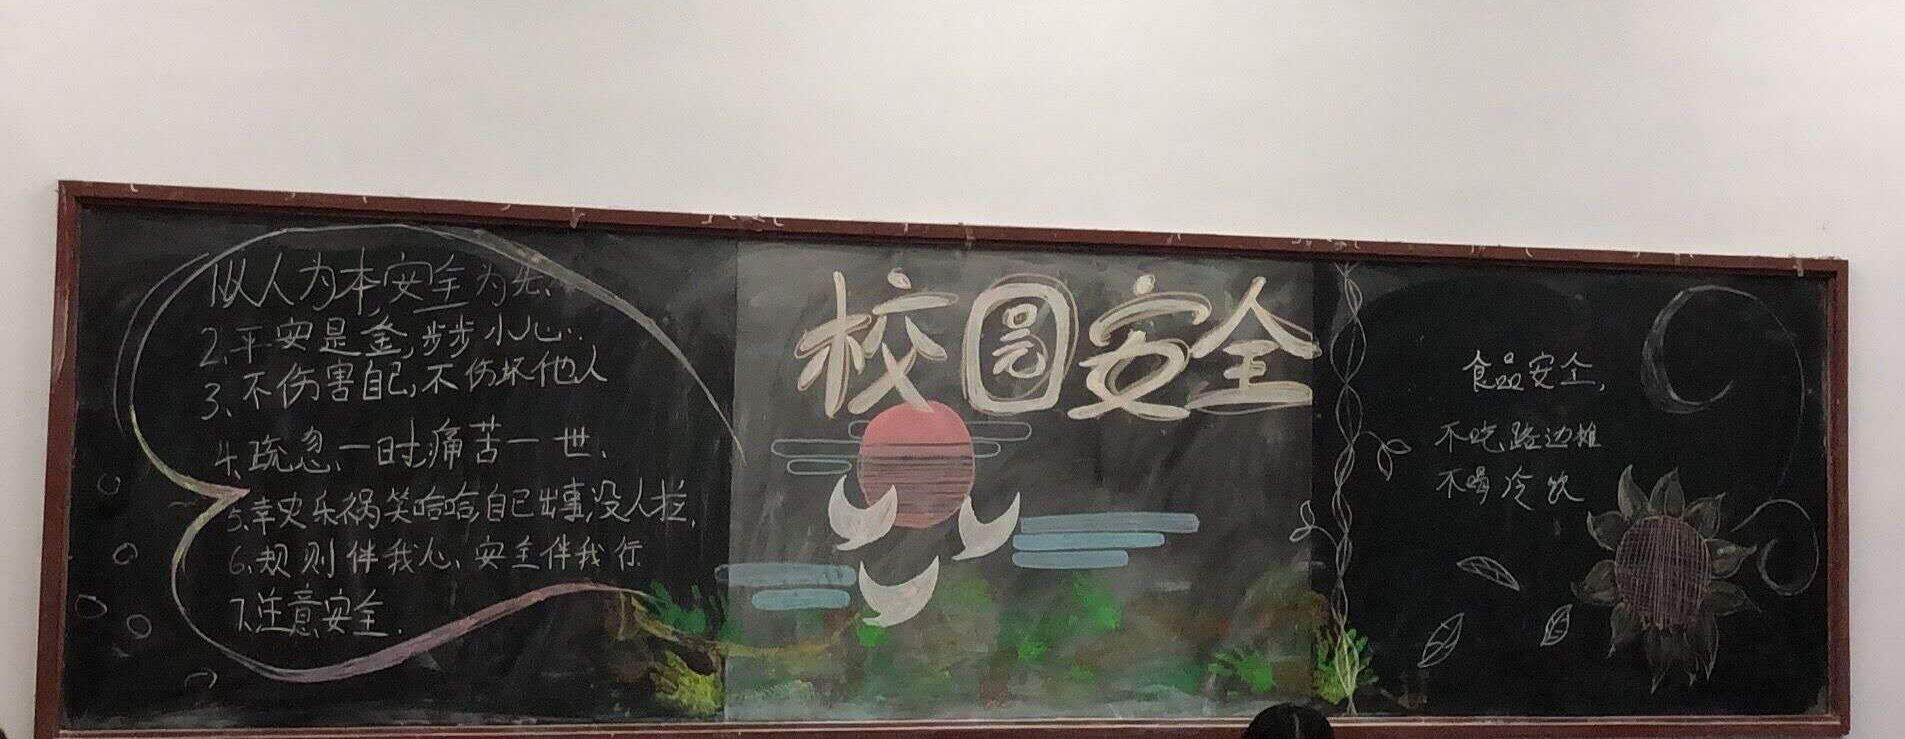 1.以人为本,安全为先、
2、平安是金,步步小心.
3、不伤害自己,不伤坏他人
4、疏忽一时,痛苦一世.
5、幸灾乐祸笑哈哈,自己出事没人拦,
6、规则伴我心、安全伴我行.
7.注意安全.
校园安全
食品安全,
不吃路边摊
不喝冷饮